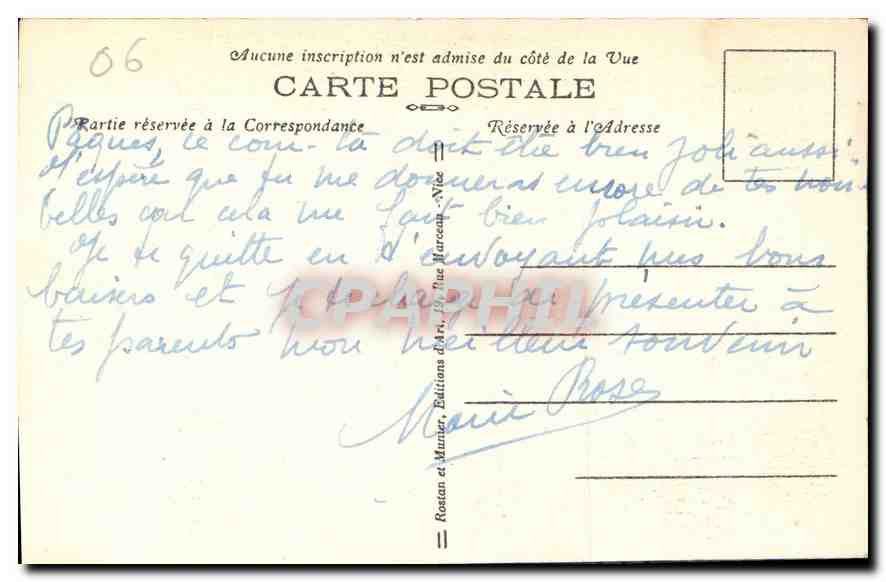 06
Aucune inscription n'est admise du côté de la Vue
CARTE POSTALE
Partie réservée à la Correspondance
Réservée à l'Adresse
Pâques, ce doit être bien joli aussi.
J'espère que tu me donneras encore de tes nou-
velles car cela me fait bien plaisir.
Je te quitte en t'envoyant mes bons
baisers et te présenter à
tes parents mon meilleur souvenir
Marie Rose
Rostan et Munier, Editions d'Art, 19, Rue Marceau - Nice
CPAPHIL